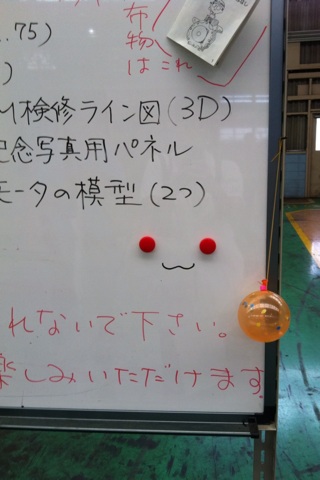 布
物
は これ
.75)
)
検修ライン図(3D)
記念写真用パネル
モータの模型(2つ)
れないで下さい。
楽しみいただけます